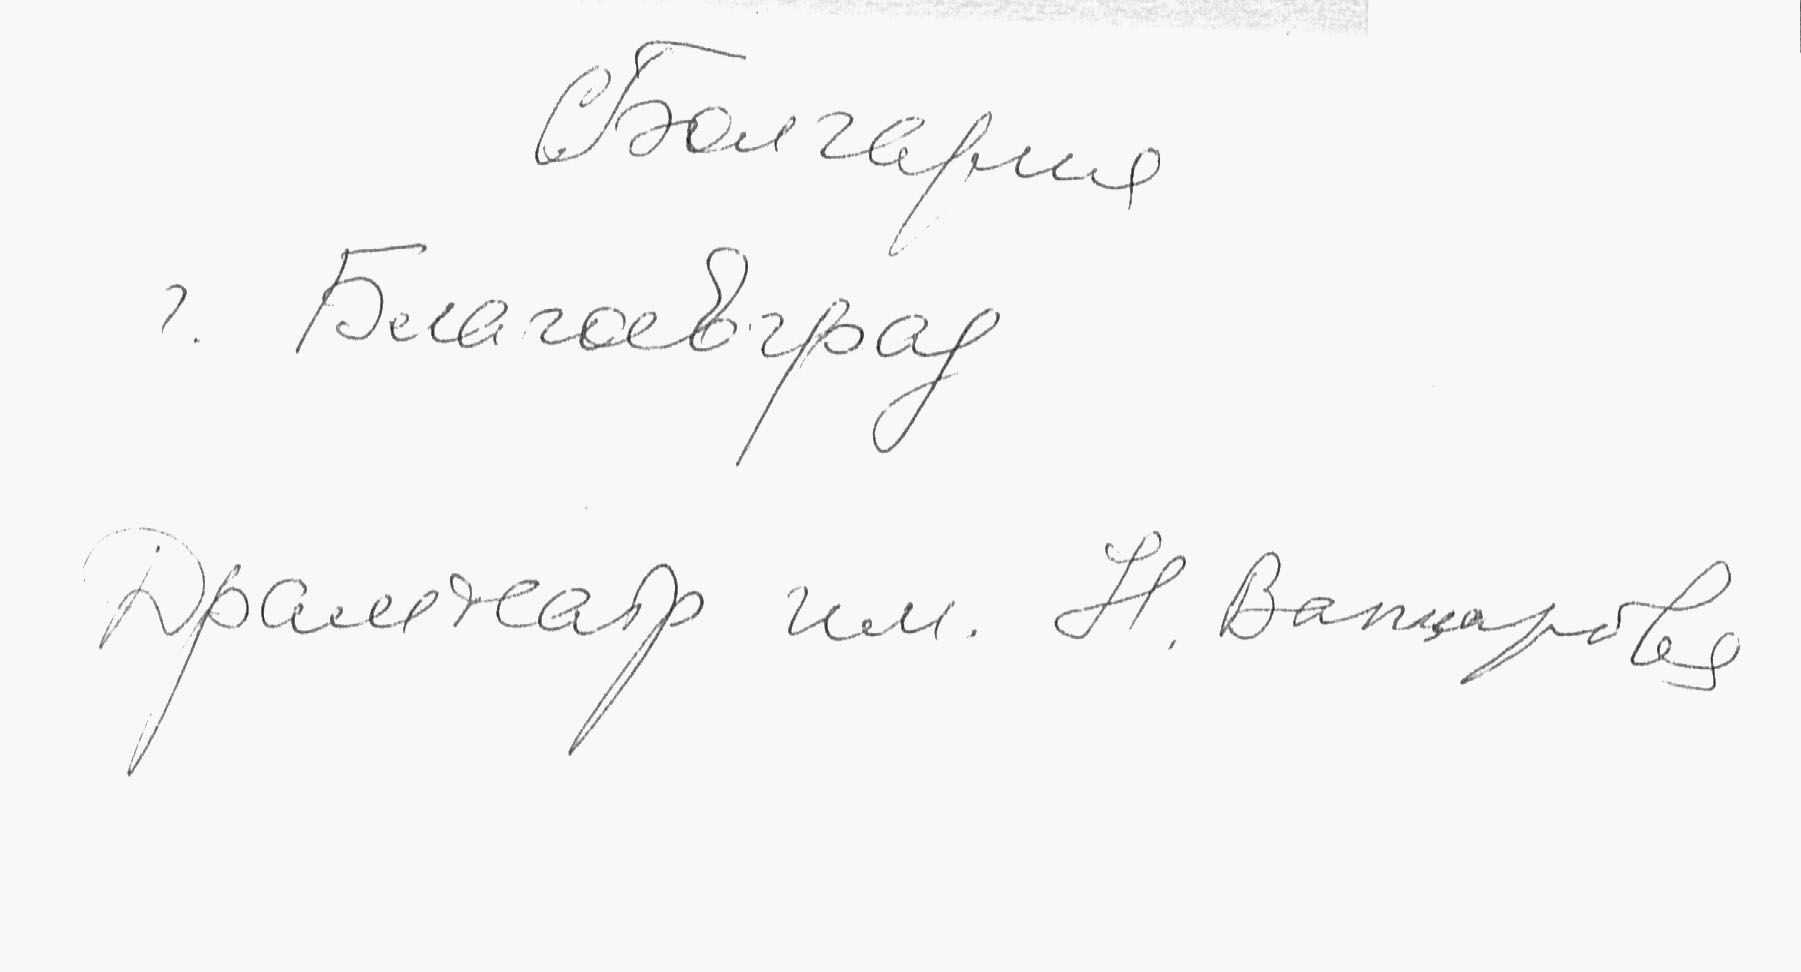 Болгария
г. Благоевград
Драмтеатр им. Н. Вапцарова